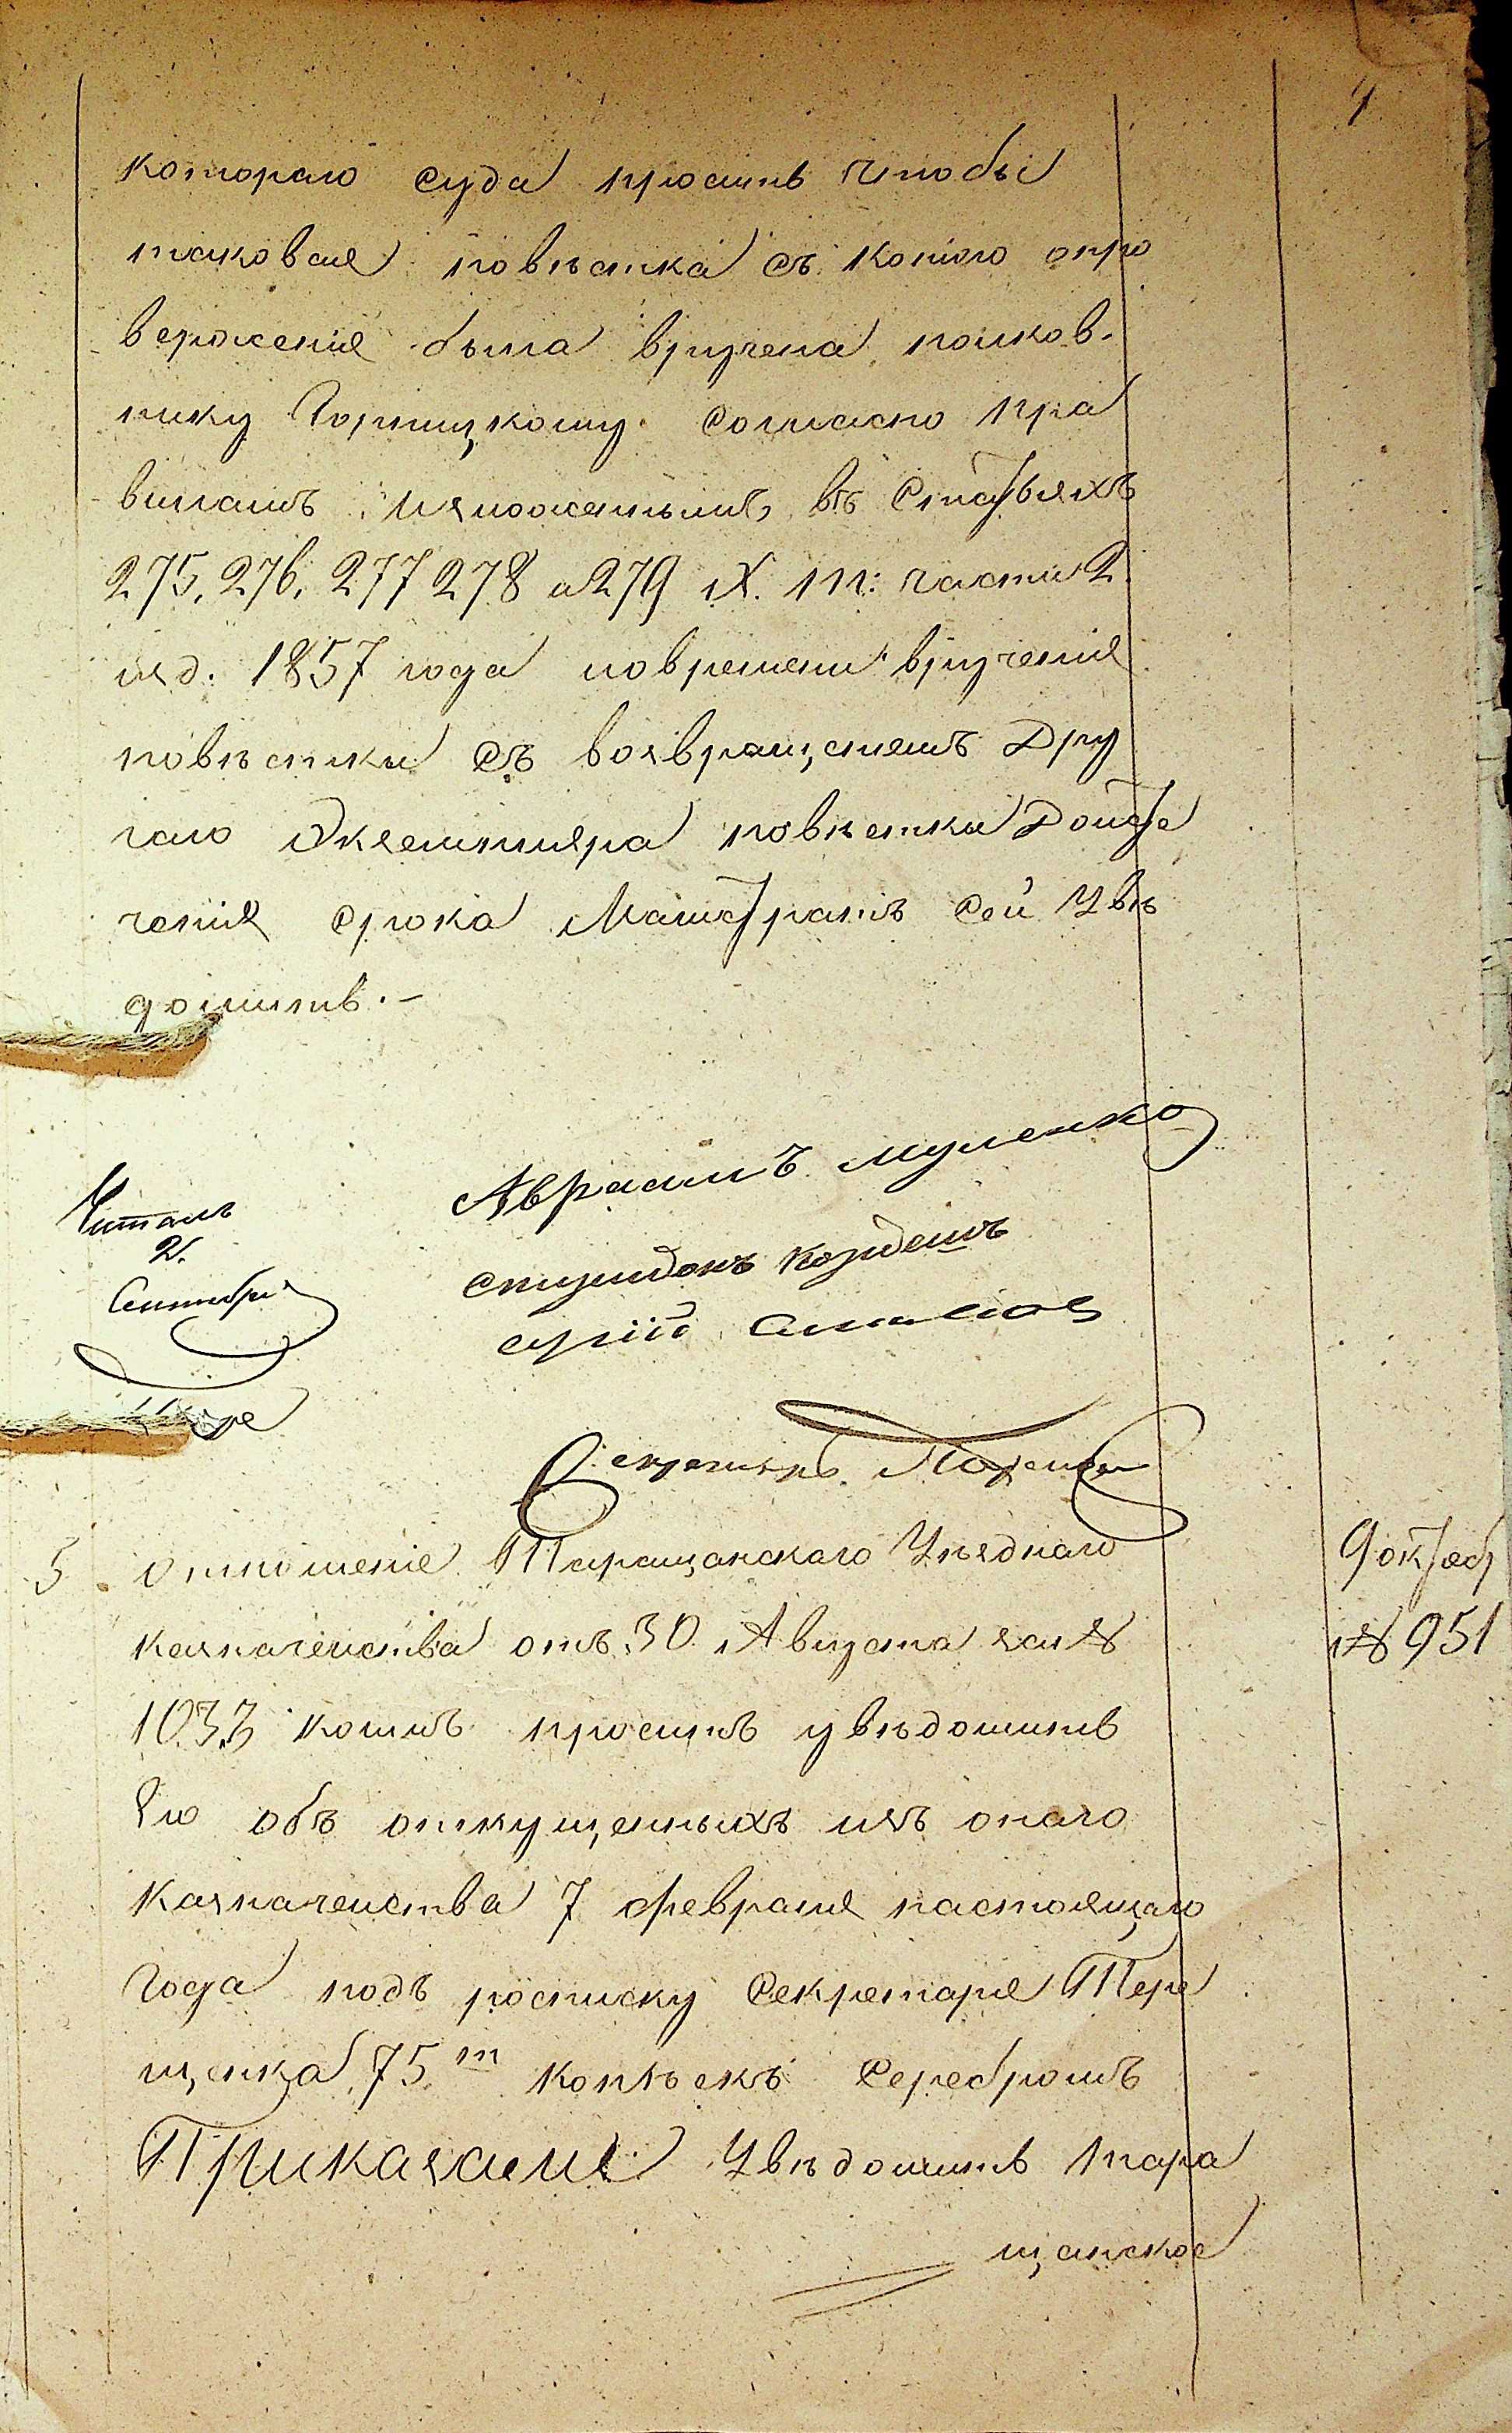 котораго суда просить чтобы
таковая повѣстка съ копіею опро
верженія была вручена полков-
нику Горницкому согласно пра
виламъ изложеннымъ въ Статьяхъ
275, 276, 277 278 и 279 X. т: части 2
изд. 1857 года повремени врученія
повѣстки съ возвращенiемъ Дру
гаго Экземпляра повѣстки Доисте
ченія срока Магистратъ сей Увѣ
домить.-
Авраамъ
Читалъ
2.
Сентября
Секретарь
5 отношеніе Таращанскаго Уѣзднаго
9 октяб
казначейства отъ 30 Августа за №
№ 951
1033 коимъ проситъ увѣдомить
Его объ отпущенныхъ изъ онаго
Казначейства 7 февраля настоящаго
Года подъ росписку Секретаря Тере
щенка 75 т копѣекъ Серебромъ
Приказали Увѣдомить Тара
щанское